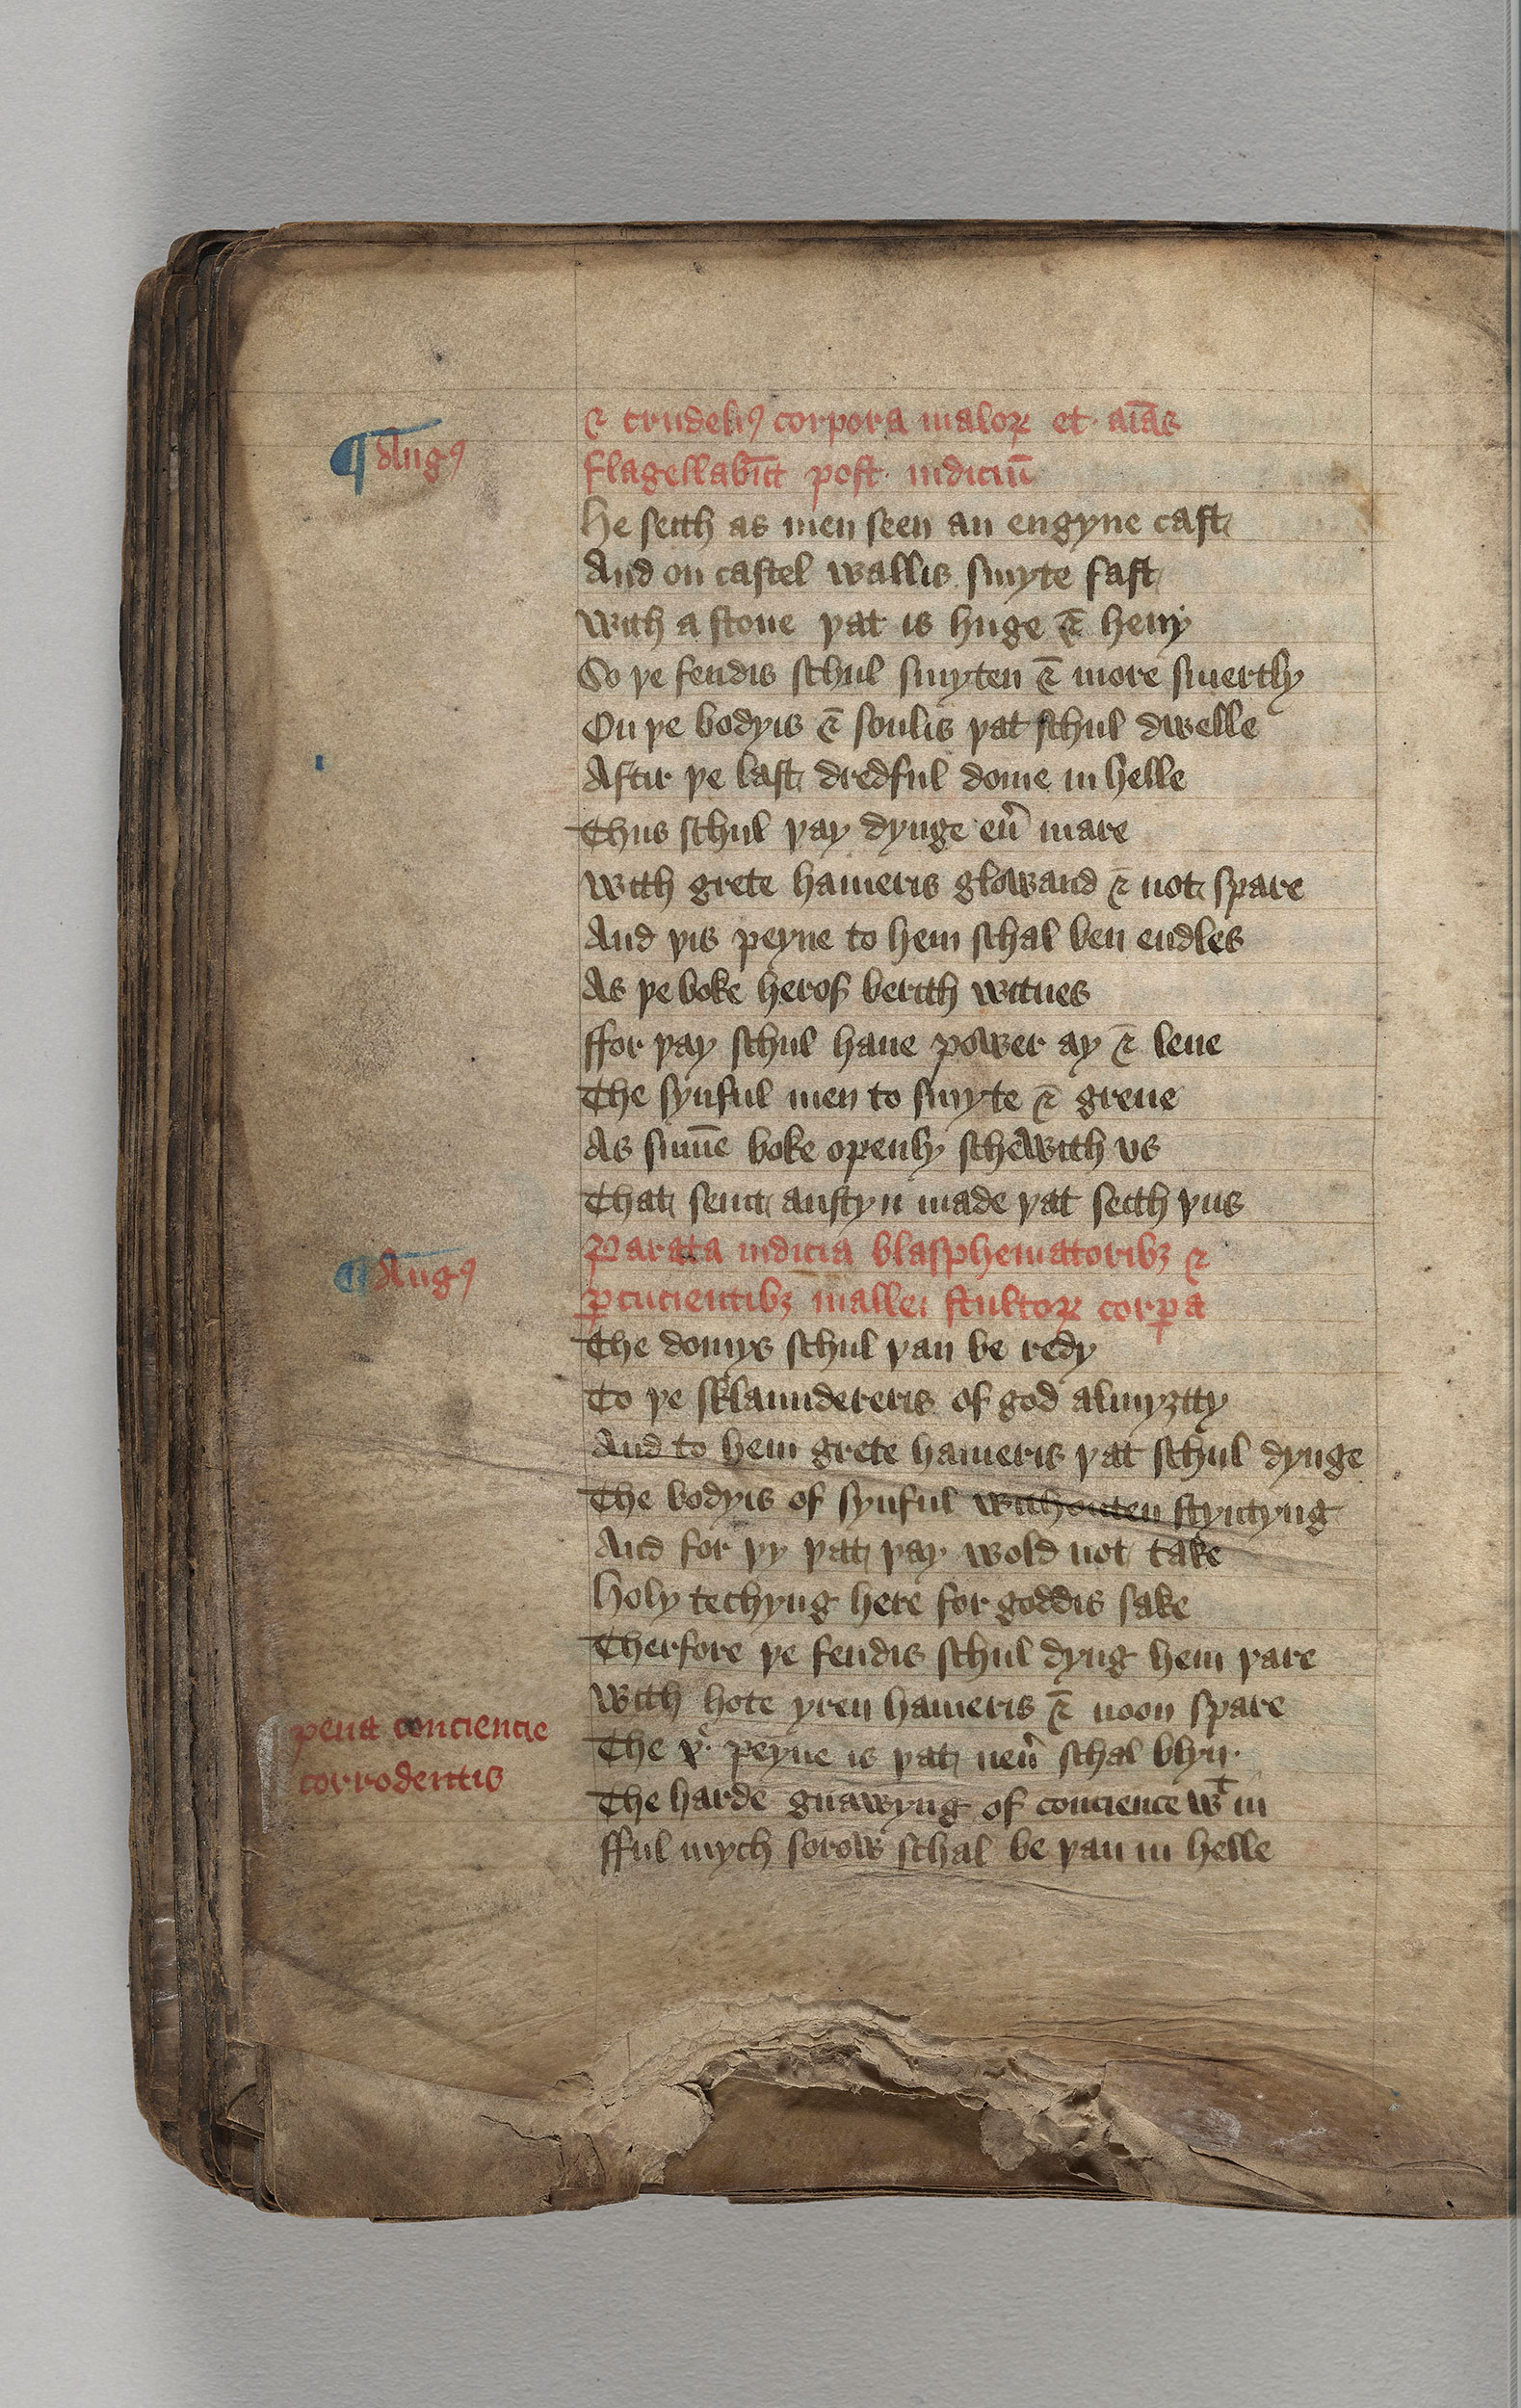 ⁊ crudeliꝰ corpora maloꝝ et aīas
¶ Augꝰ
flagellabūt post iudiciū
He seith as men seen an engyne cast
And on castel wallis smyte fast
With a stone þat is huge ⁊ heuy
So þe fendis schul smyten ⁊ more smertly
On þe bodyis ⁊ soulis þat schul dwelle
Aftir þe last dredful dome in helle
Thus schul þay dynge eu̾ mare
With grete hameris glowand ⁊ not spare
And þis peyne to hem schal ben endles
As þe boke herof berith witnes
ffor þay schul haue power ay ⁊ leue
The synful men to smyte ⁊ greue
As sum̄e boke openly schewith vs
That seint austyn made þat seith þus
Parata iudicia blasphematoribꝫ ⁊
¶ Augꝰ
ꝑcucientibꝫ mallei stultoꝝ corꝑa
The domys schul þan be redy
To þe sklaundereris of god almyȝtty
And to hem grete hameris þat schul dynge
The bodyis of synful withouten styntyng
And for þy þat þay wold not take
Holy techyng here for goddis sake
Therfore þe fendis schul dyng hem þare
With hote yren hameris ⁊ noon spare
pena conciencie
The x peyne is þat neu̾ schal blyn
corrodentis
The harde gnawyng of concience wᵗ in
fful mych sorow schal be þan in helle